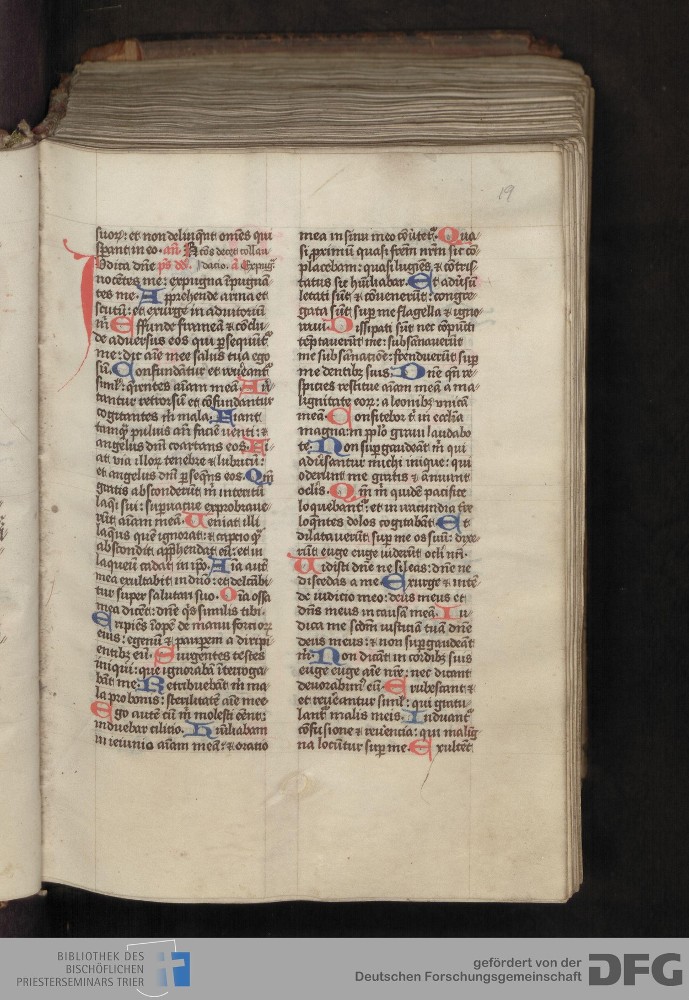 19
suor(um): et non delinqu(e)nt om(n)es qui
sp(er)ant in eo.
udica d(omi)ne
nocētes me: expugna ipugnā
tes me. Apprehende arma et
scutū: et exurge in adiutoriū
m̄. Effunde frameā & cōclu
de adversus eos qui p(er)sequūt(ur)
me: dic aīe mee salus tua ego
sū. Confundātur et revereant(ur)
siml': querentes aīam meā. Av
tantur retrorsū et cōfundantur
cogitantes m̄ mala. Fiant
tamq(uam) pulvis añ faciē venti: &
angelus dn̄i coartans eos. Fi
at via illor(um) tenebre & lubricū:
et angelus dn̄i p(er)seqn̄s eos. Qm̄
gratis absconderūt m̄ interitū
laq(ue)i sui: supervacue exprobrave
rūt aīam meā. Veniat illi
laq(ue)us quē ignorat: & captio q(uam)
abscondit app(re)hendat eū: et in
laqueū cadat in ip(s)o. Aīa aut(em)
mea exultabit in dn̄o: et delectabi
tur super salutari suo. Oīa ossa
mea dicēt: dn̄e q(ui)s similis tibi.
Eripiēs īopē de manu fortior(um)
eius: egenū & pauperem a diripi
entib(us) eū. Surgentes testes
iniqui: que ignorabā īterroga
bāt me. Retribuebāt m̄ ma
la pro bonis: sterilitatē aīe mee.
Ego autē cū m̄ molesti eēnt:
induebar cilitio. Hūiliabam
in ieiunio aīam meā: & oratio
mea in sinu meo cōvertet(ur). Qua
si proximū quasi frēm nrm̄ sic cō
placebam: quasi lugēs & cōtris
tatus sic hūiliabar. Et adūsū
letati sūt & cōvenerūt: congre
gata sūt sup(er) me flagella & igno
ravi. Dissipati sūt nec cōpūcti
tēptaverūt me: subsānaverūt
me subsānatiōe: frenduerūt sup(er)
me dentib(us) suis. Dn̄e qn̄ re
spicies restitue aīam meā a ma
lignitate eor(um): a leonib(us) unicā
meā. Confitebor t(ibi) in ecclīa
magna: in pp̄lo gravi laudabo
te. Non sup(er)gaudeāt m̄ qui
adūsantur michi inique: qui
oderūt me gratis & annuūt
oclīs. Qm̄ m̄ quidē pacifice
loquebant(ur): et in iracundia tr̄e
loqn̄tes dolos cogitabāt. Et
dilataverūt sup(er) me os suū: dixe
rūt euge euge viderūt ocl'i nr̄i.
Vidisti dn̄e ne sileas: dn̄e ne
discedas a me. Exurge & intē
de iudicio meo: deus meus et
dn̄s meus in causā meā. Iu
dica me scd̄m iusticiā tuā dn̄e
deus meus: & non sup(er)gaudeāt
m̄. Non dicāt in cordib(us) suis
euge euge aīe nr̄e: nec dicant
devorabim(us) eū. Erubescant &
et revereantur simul: qui gratu
lant(ur) malis meis. Induant(ur)
cōfusione & reverencia: qui malig
na locūtur sup(er) me. Exultēt
BIBLIOTHEK DES
BISCHÖFLICHEN
PRIESTERSEMINARS TRIER
gefördert von der
Deutschen Forschungsgemeinschaft
DFG